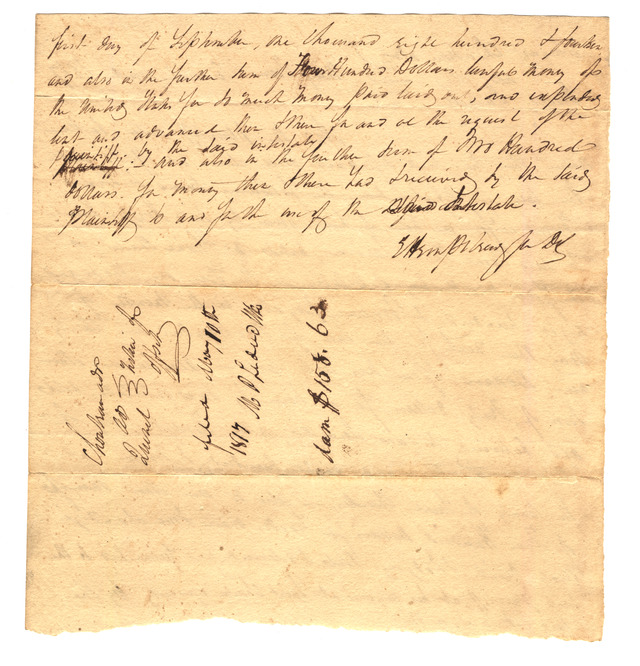 first day of September, one thousand eight hundred &
and also in the further sum of Four Hundred Dollars lawful money of
the United States for so much money paid laid out, and expended
lent and advanced then & there for and at the request of the
by the said intestate
plaintiff. And also in the further sum of Two Hundred
Dollars. for money then & there had & received by the said
Plaintiff to and for the use of the said intestate.
for Df
adr
vs
filed May 10th
1817
dam $158.63